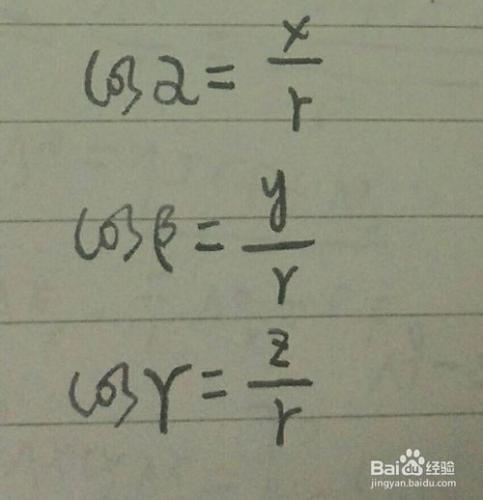 cosα = x/r
cosβ = y/r
cosγ = z/r
Baidu经验
jingyan.baidu.com